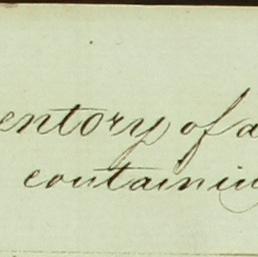 entory of a
containin